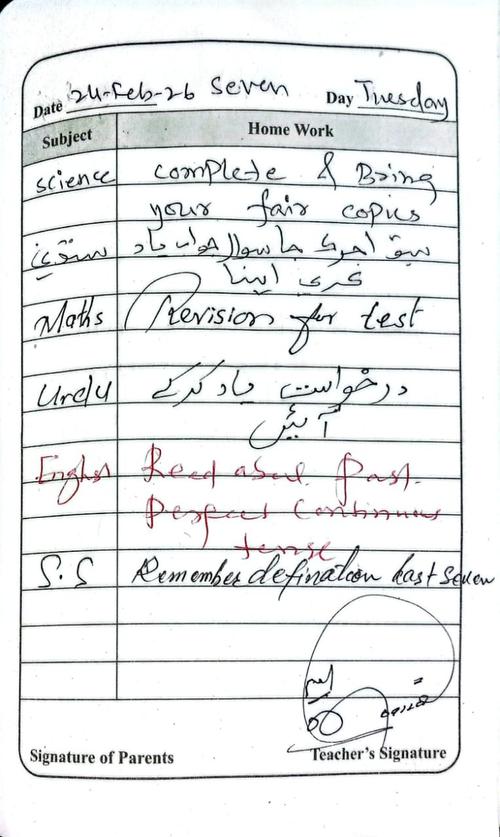 Date 24-Feb-26 Seven Day Tuesday
Subject Home Work
science complete & Bring
your fair copies
سنڌي سبق آخري جا سوال جواب ياد
ڪري اينا
Maths Revision for test
Urdu درخواست یاد کرکے
آئیں
English Read about Past
Perfect Continuous
tense
S.S Remember defination last seven
Signature of Parents Teacher's Signature